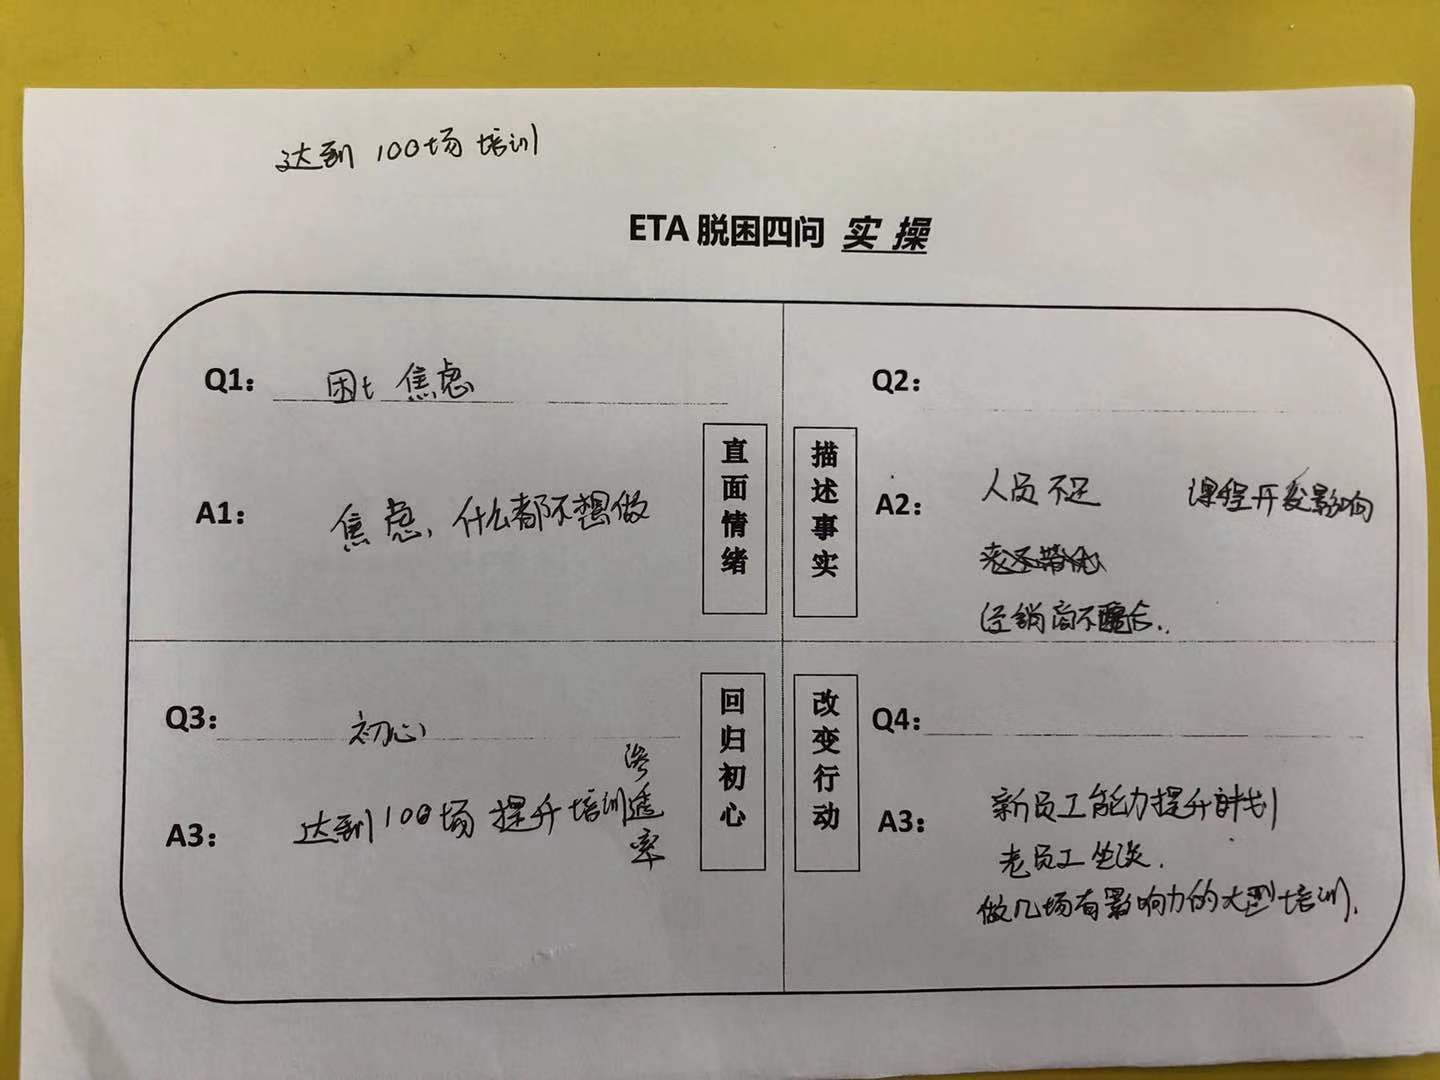 达到100场培训
ETA 脱困四问 实操
Q1: 焦虑
A1: 焦虑，什么都不想做
直面情绪
Q2:
A2: 人员不足 课程开发影响
经销商不配合.
描述事实
Q3: 初心
A3: 达到100场 提升培训渗透率
回归初心
Q4:
A3: 新员工能力提升计划
老员工坐谈.
做几场有影响力的大型培训.
改变行动